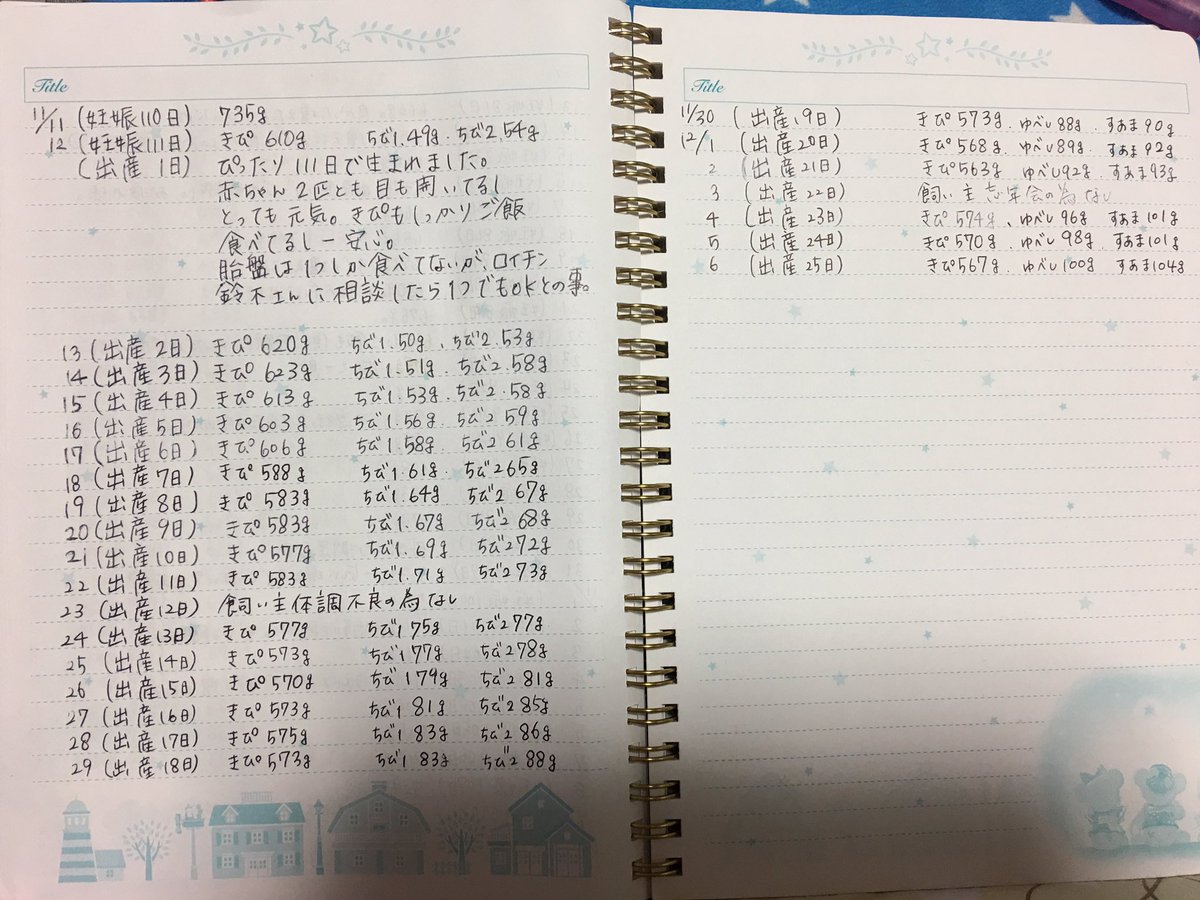 Title
11/11 (妊娠110日) 735g
12 (妊娠111日) きぴ 610g ちび1.49g ちび2 54g
(出産 1日) ぴったり111日で生まれました。
赤ちゃん2匹とも目も開いてるし
とっても元気。きぴもしっかりご飯
食べてるし一安心。
胎盤は1つしか食べてないが、ロイチン
鈴木さんに相談したら1つでもOKとの事。
13 (出産 2日) きぴ 620g ちび1.50g、ちび2.53g
14 (出産 3日) きぴ 623g ちび1.51g.ちび2.58g
15 (出産 4日) きぴ 613g ちび1.53g.ちび2.58g
16 (出産 5日) きぴ 603g ちび1.56g.ちび2 59g
17 (出産 6日) きぴ 606g ちび1.58g. ちび2 61g
18 (出産 7日) きぴ 588g ちび1.61g. ちび2 65g
19 (出産 8日) きぴ 583g ちび1.64g. ちび2 67g
20 (出産 9日) きぴ 583g ちび1.67g ちび2 68g
21 (出産 10日) きぴ 577g ちび1.69g ちび2 72g
22 (出産 11日) きぴ 583g ちび1.71g ちび2 73g
23 (出産 12日) 飼い主体調不良の為なし
24 (出産 13日) きぴ 577g ちび1 75g ちび2 77g
25 (出産 14日) きぴ 573g ちび1 77g ちび2 78g
26 (出産 15日) きぴ 570g ちび1 79g ちび2 81g
27 (出産 16日) きぴ 573g ちび1 81g ちび2 85g
28 (出産 17日) きぴ 575g ちび1 83g ちび2 86g
29 (出産 18日) きぴ 573g ちび1 83g ちび2 88g
Title
11/30 (出産 19日) きぴ 573g.ゆべし 88g. すあま 90g
12/1 (出産 20日) きぴ 568g.ゆべし 89g. すあま 92g
2 (出産 21日) きぴ 563g. ゆべし 92g. すあま 93g
3 (出産 22日) 飼い主忘年会の為なし
4 (出産 23日) きぴ 574g、ゆべし 96g. すあま 101g
5 (出産 24日) きぴ 570g.ゆべし 98g. すあま 101g
6 (出産 25日) きぴ 567g.ゆべし 100g. すあま 104g